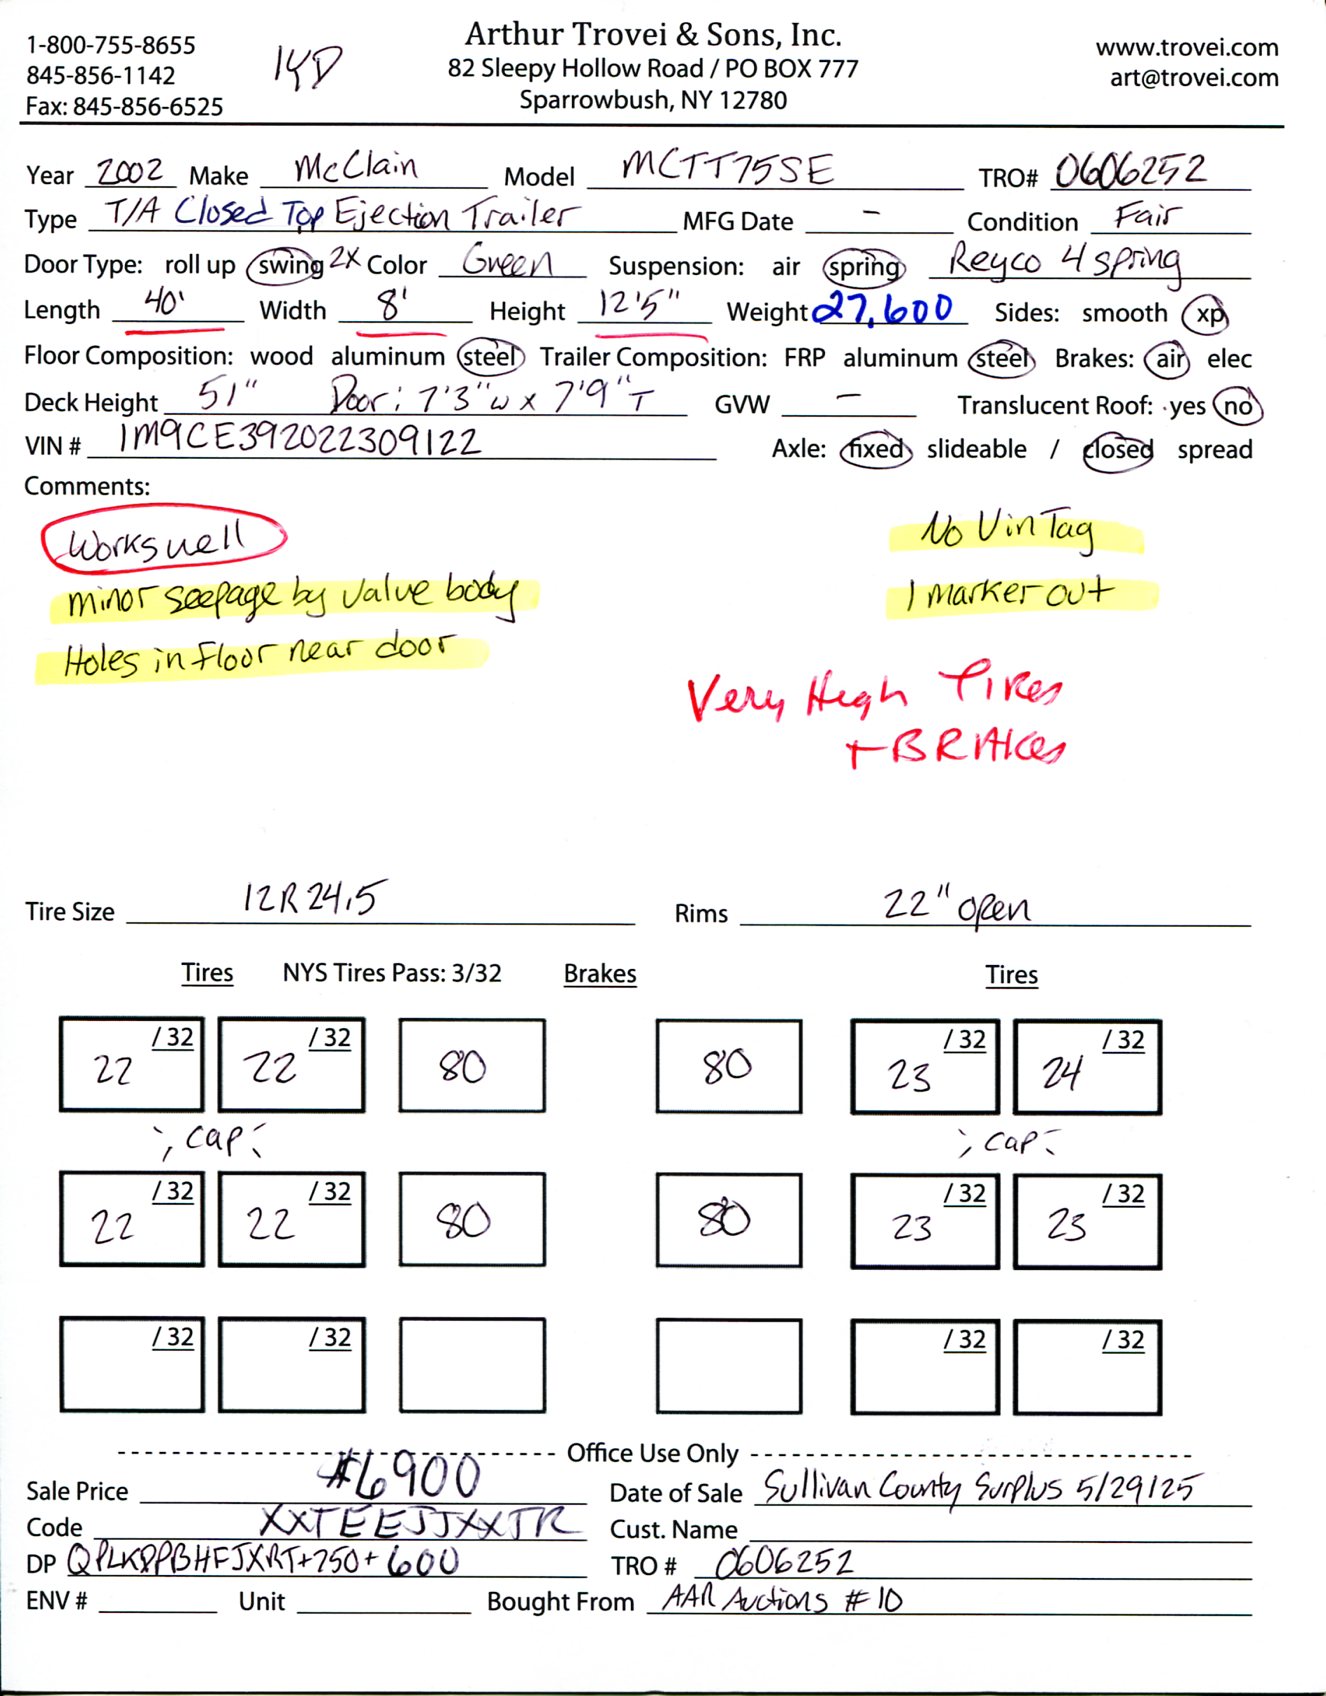 1-800-755-8655
845-856-1142
Fax: 845-856-6525
KYD
Arthur Trovei & Sons, Inc.
82 Sleepy Hollow Road / PO BOX 777
Sparrowbush, NY 12780
www.trovei.com
art@trovei.com
Year 2002 Make McClain Model MCTT75SE TRO# 0606252
Type T/A Closed Top Ejection Trailer MFG Date - Condition Fair
Door Type: roll up swing 2X Color Green Suspension: air spring Reyco 4 spring
Length 40' Width 8' Height 12'5" Weight 27,600 Sides: smooth xp
Floor Composition: wood aluminum steel Trailer Composition: FRP aluminum steel Brakes: air elec
Deck Height 51" Door: 7'3"W x 7'9"T GVW - Translucent Roof: yes no
VIN # 1M9CE392022309122 Axle: fixed slideable / closed spread
Comments:
Works well
minor seepage by valve body
Holes in floor near door
No Vin Tag
1 marker out
Very High Tires
+ BRAKes
Tire Size 12R24.5 Rims 22" open
Tires NYS Tires Pass: 3/32 Brakes Tires
22 /32 22 /32 80 80 23 /32 24 /32
cap cap
22 /32 22 /32 80 80 23 /32 23 /32
/32 /32 /32 /32
Office Use Only
Sale Price #6900 Date of Sale Sullivan County Surplus 5/29/25
Code XXTEEJJXXTR Cust. Name
DP +750+600 TRO # 0606252
ENV # Unit Bought From AAR Auctions #10